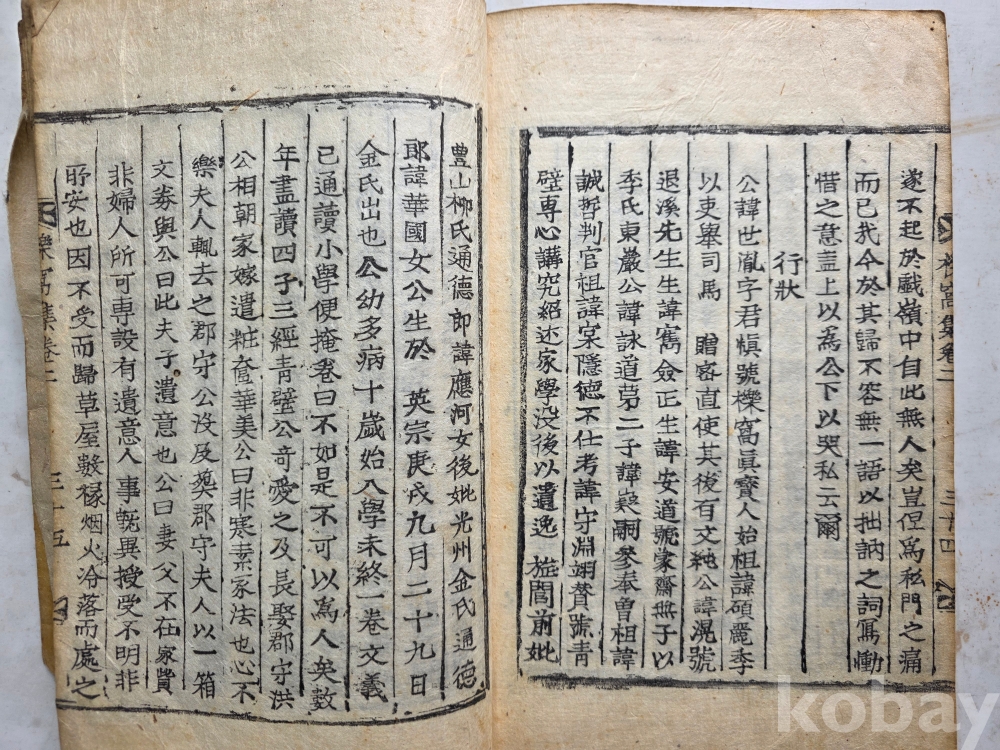 遂不起於戲嶺中自此無人矣豈但爲私門之痛
而已我今於其歸不容無一語以拙訥之詞寫慟
惜之意盖上以爲公下以哭私云爾
行狀
公諱世胤字君愼號櫟窩眞寶人始祖諱碩麗季
以吏擧司馬 贈密直使其後有文純公諱滉號
退溪先生生諱寯僉正生諱安道號蒙齋無子以
季氏東巖公諱詠道苐二子諱嶷嗣參奉曾祖諱
誠哲判官祖諱杲隱德不仕考諱守淵翊賛號青
壁專心講究紹述家學没後以遺逸 㫌閭前妣
櫟窩集卷二 三十四
豊山柳氏通德郎諱應河女後妣光州金氏通德
郎諱華國女公生於 英宗庚戌九月二十九日
金氏出也公幼多病十歲始入學未終一卷文義
已通讀小學便掩卷曰不如是不可以爲人矣數
年盡讀四子三經青壁公奇愛之及長娶郡守洪
公相朝家嫁遣粧奩華美公曰非寒素家法也心不
樂夫人輒去之郡守公没及奠郡守夫人以一箱
文劵與公曰此夫子遺意也公曰妻父不在家貲
非婦人所可專設有遺意人事旣異授受不明非
所安也因不受而歸草屋數椽烟火冷落而處之
櫟窩集卷二 三十五
kobay